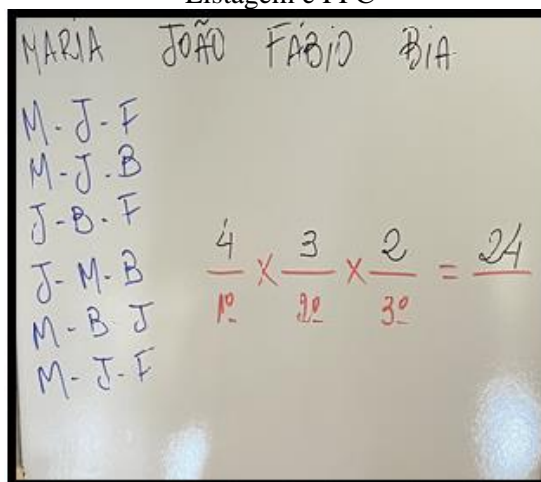 Listagem e PFC
MARIA JOÃO FÁBIO BIA
M-J-F
M-J.B
J-B-F
J-M-B
M-B J
M-J-F
4 x 3 x 2 = 24
1º 2º 3º